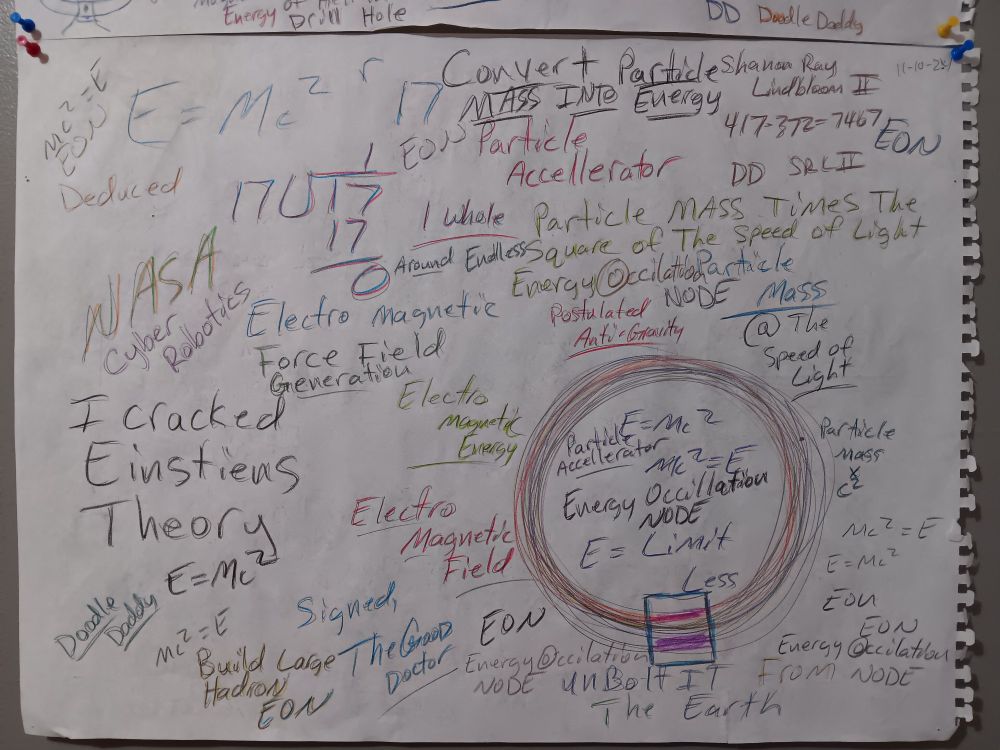 Energy of
Drill Hole
DD Doodle Daddy
Mc² = E
EON
Deduced
E = Mc² r 17
Convert Particle
MASS INTO Energy
Shanon Ray
Lindbloom II
417-372-7467
DD SRL II
EON
EON
Particle
Accellerator
1
17 17
17
0
1 Whole
Around Endless
Particle MASS Times The
Square of The Speed of Light
Energy Occilation
NODE
Particle
Mass
@ The
Speed of
Light
NASA
Cyber
Robotics
Electro magnetic
Force Field
Generation
Postulated
Anti-Gravity
I cracked
Einstiens
Theory
E=Mc²
Electro
Magnetic
Energy
Electro
Magnetic
Field
E=Mc²
Particle
Accellerator
Mc²=E
Energy Occillation
NODE
E = Limit
Less
Particle
Mass
x
c²
Mc² = E
E = Mc²
EON
EON
Energy Occilation
From NODE
Doodle
Daddy
Mc² = E
Build Large
Hadron
EON
Signed,
The Good
Doctor
EON
Energy Occilation
NODE
unBolt IT
The Earth